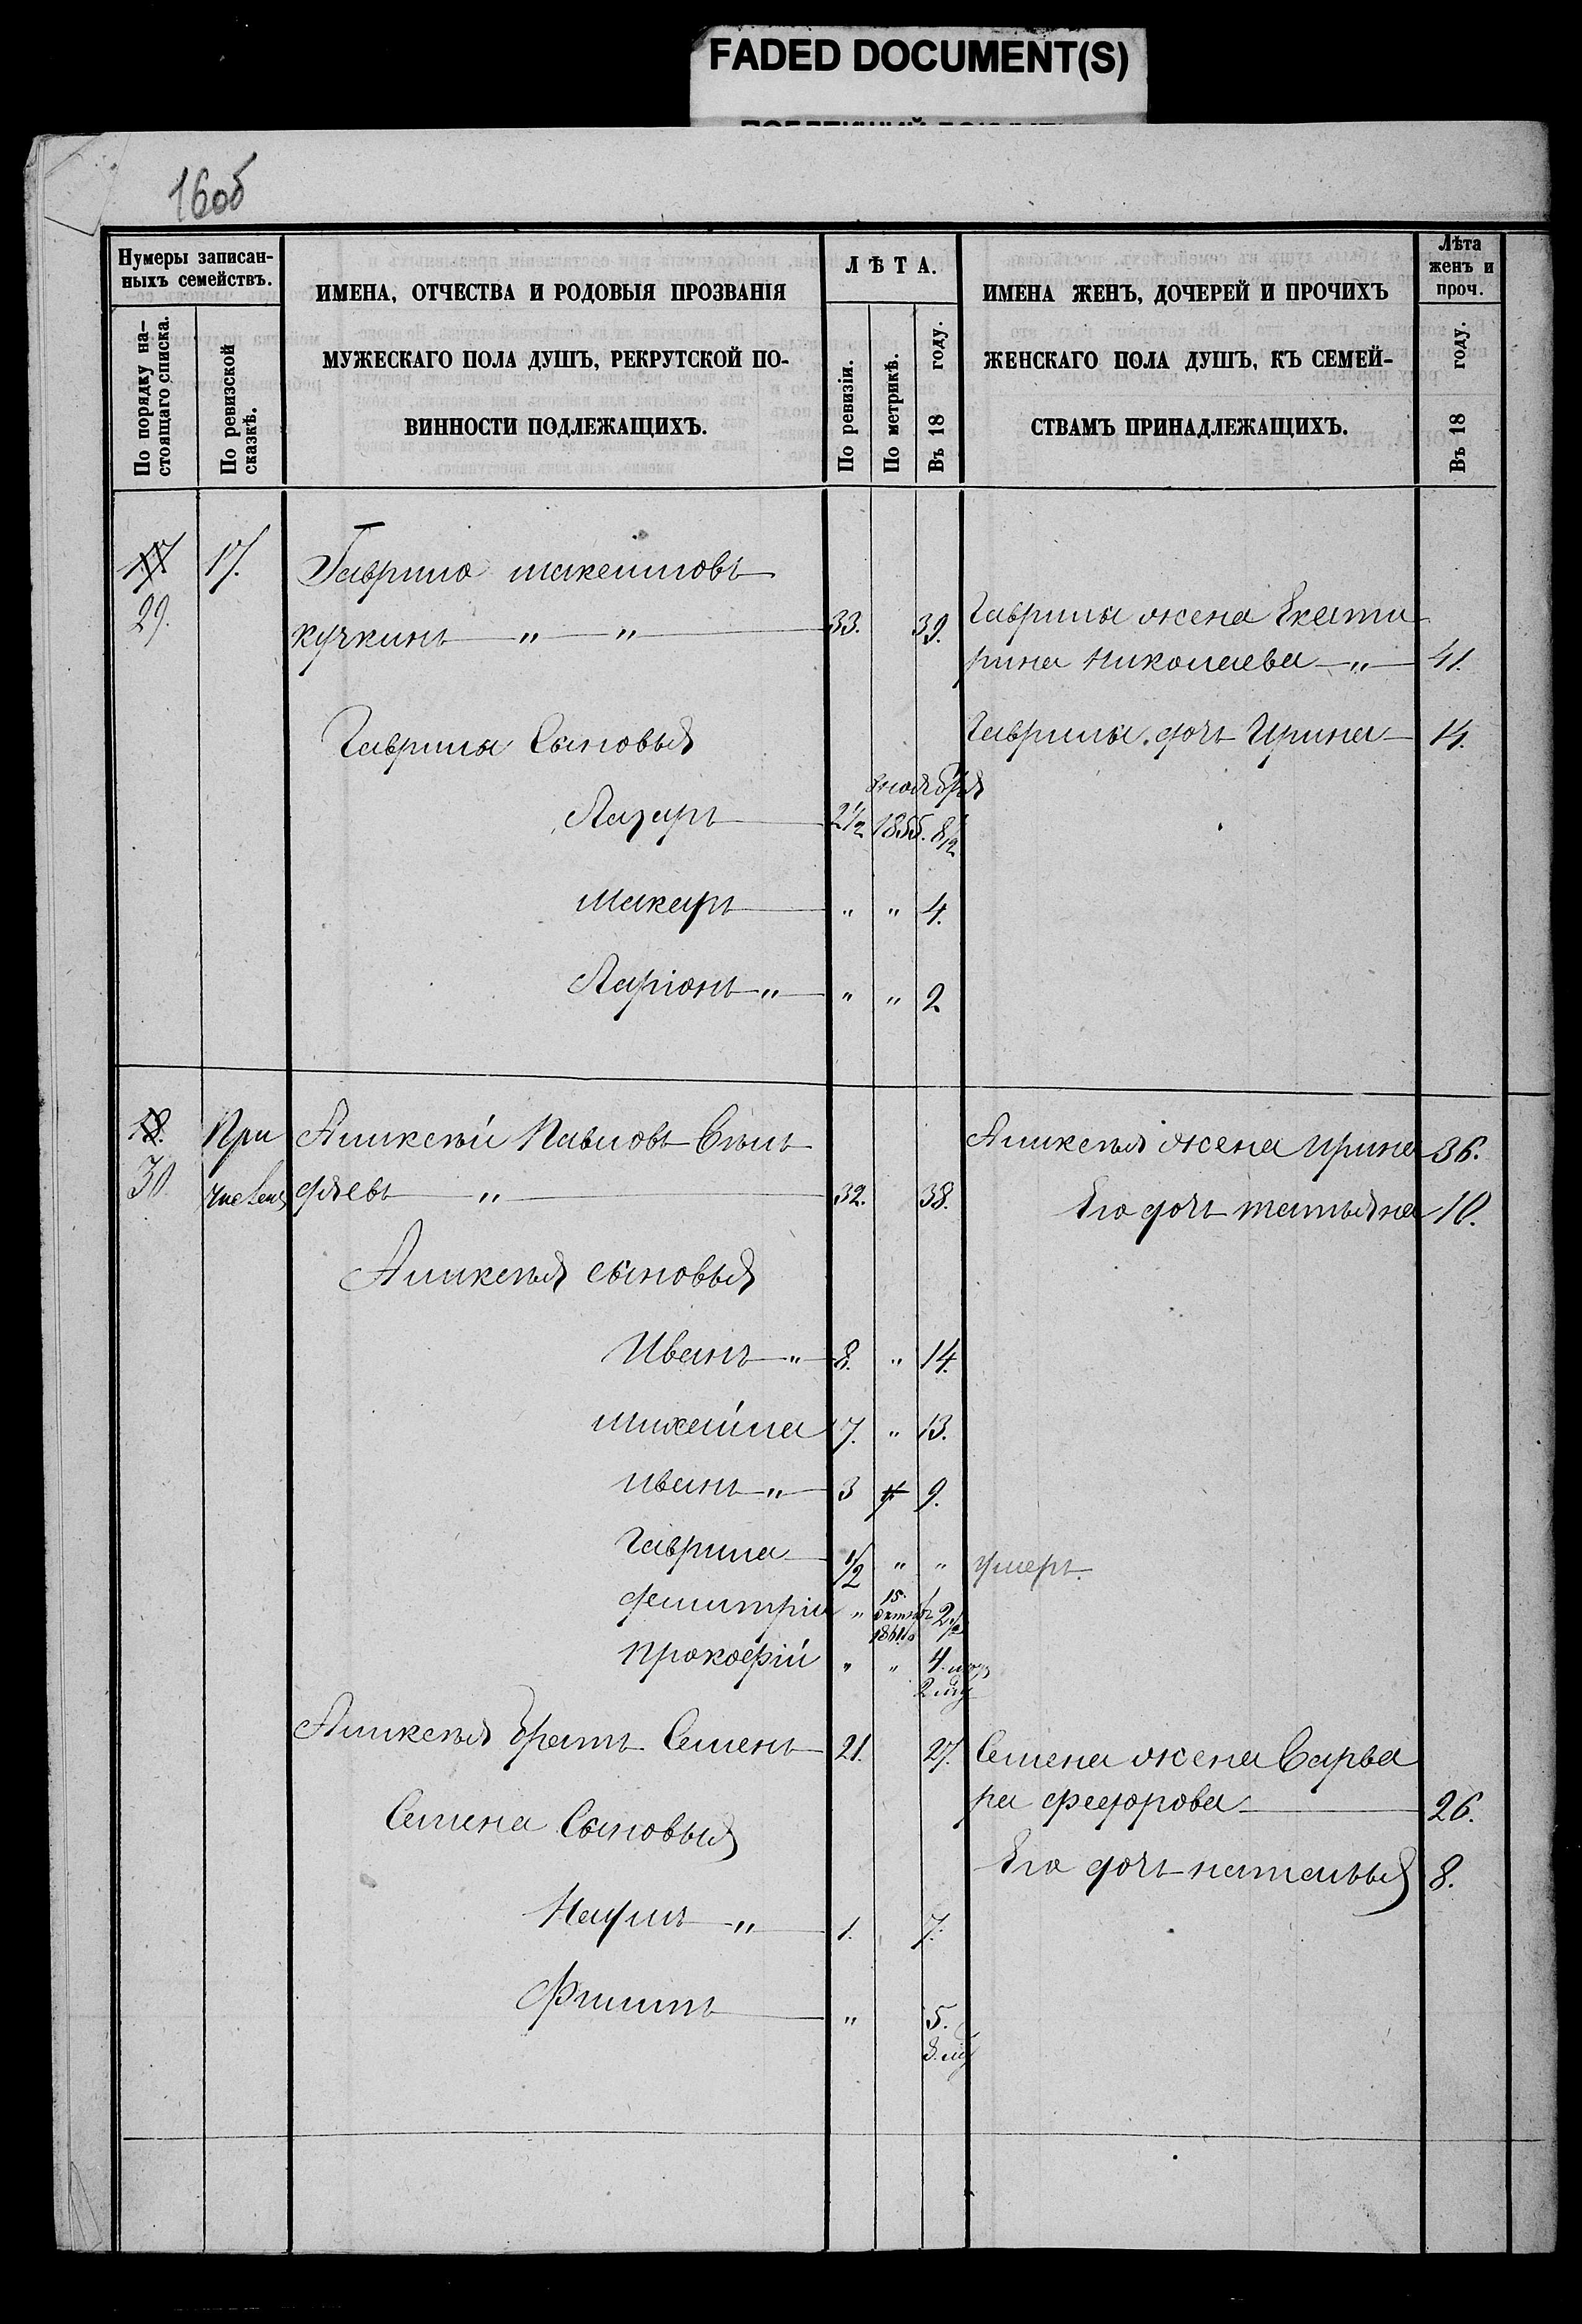 FADED DOCUMENT(S)
16об
Нумеры записан-
ныхъ семействъ.
По порядку на-
стоящаго списка.
По ревизской
сказкѣ.
ИМЕНА, ОТЧЕСТВА И РОДОВЫЯ ПРОЗВАНІЯ
МУЖЕСКАГО ПОЛА ДУШЪ, РЕКРУТСКОЙ ПО-
ВИННОСТИ ПОДЛЕЖАЩИХЪ.
ЛѢТА.
По ревизіи.
По метрикѣ.
Въ 18 году.
ИМЕНА ЖЕНЪ, ДОЧЕРЕЙ И ПРОЧИХЪ
ЖЕНСКАГО ПОЛА ДУШЪ, КЪ СЕМЕЙ-
СТВАМЪ ПРИНАДЛЕЖАЩИХЪ.
Лѣта
женъ и
проч.
Въ 18 году.
17. 17. Гаврило
29. кучкинъ " " 33. 39. Гаврилы жена Екате
рина Николаева " 41.
Гаврилы Сыновья Гаврилы дочь Ирина 14.
ноября
Лазарь 2 1/2 1855. 8 1/2
Макаръ " " 4.
Ларіонъ " " " 2
18. При Алексѣй Павловъ Алексѣя жена Ирина 36.
30 числен дѣевъ " 32. 38. Его дочь татьяна 10.
Алексѣя сыновья
Иванъ " 8. " 14.
михайла 7. " 13.
иванъ " 3 9.
Гаврила 1/2 " " умеръ.
димитрій " 15. 2 1/2
Прокофій " " 4.
Алексѣя братъ Семенъ 21. 27. Семена жена Варва
ра федорова 26.
Семена Сыновья
Его дочь наталья 8.
Наумъ " 1. 7.
Филипъ " 5.